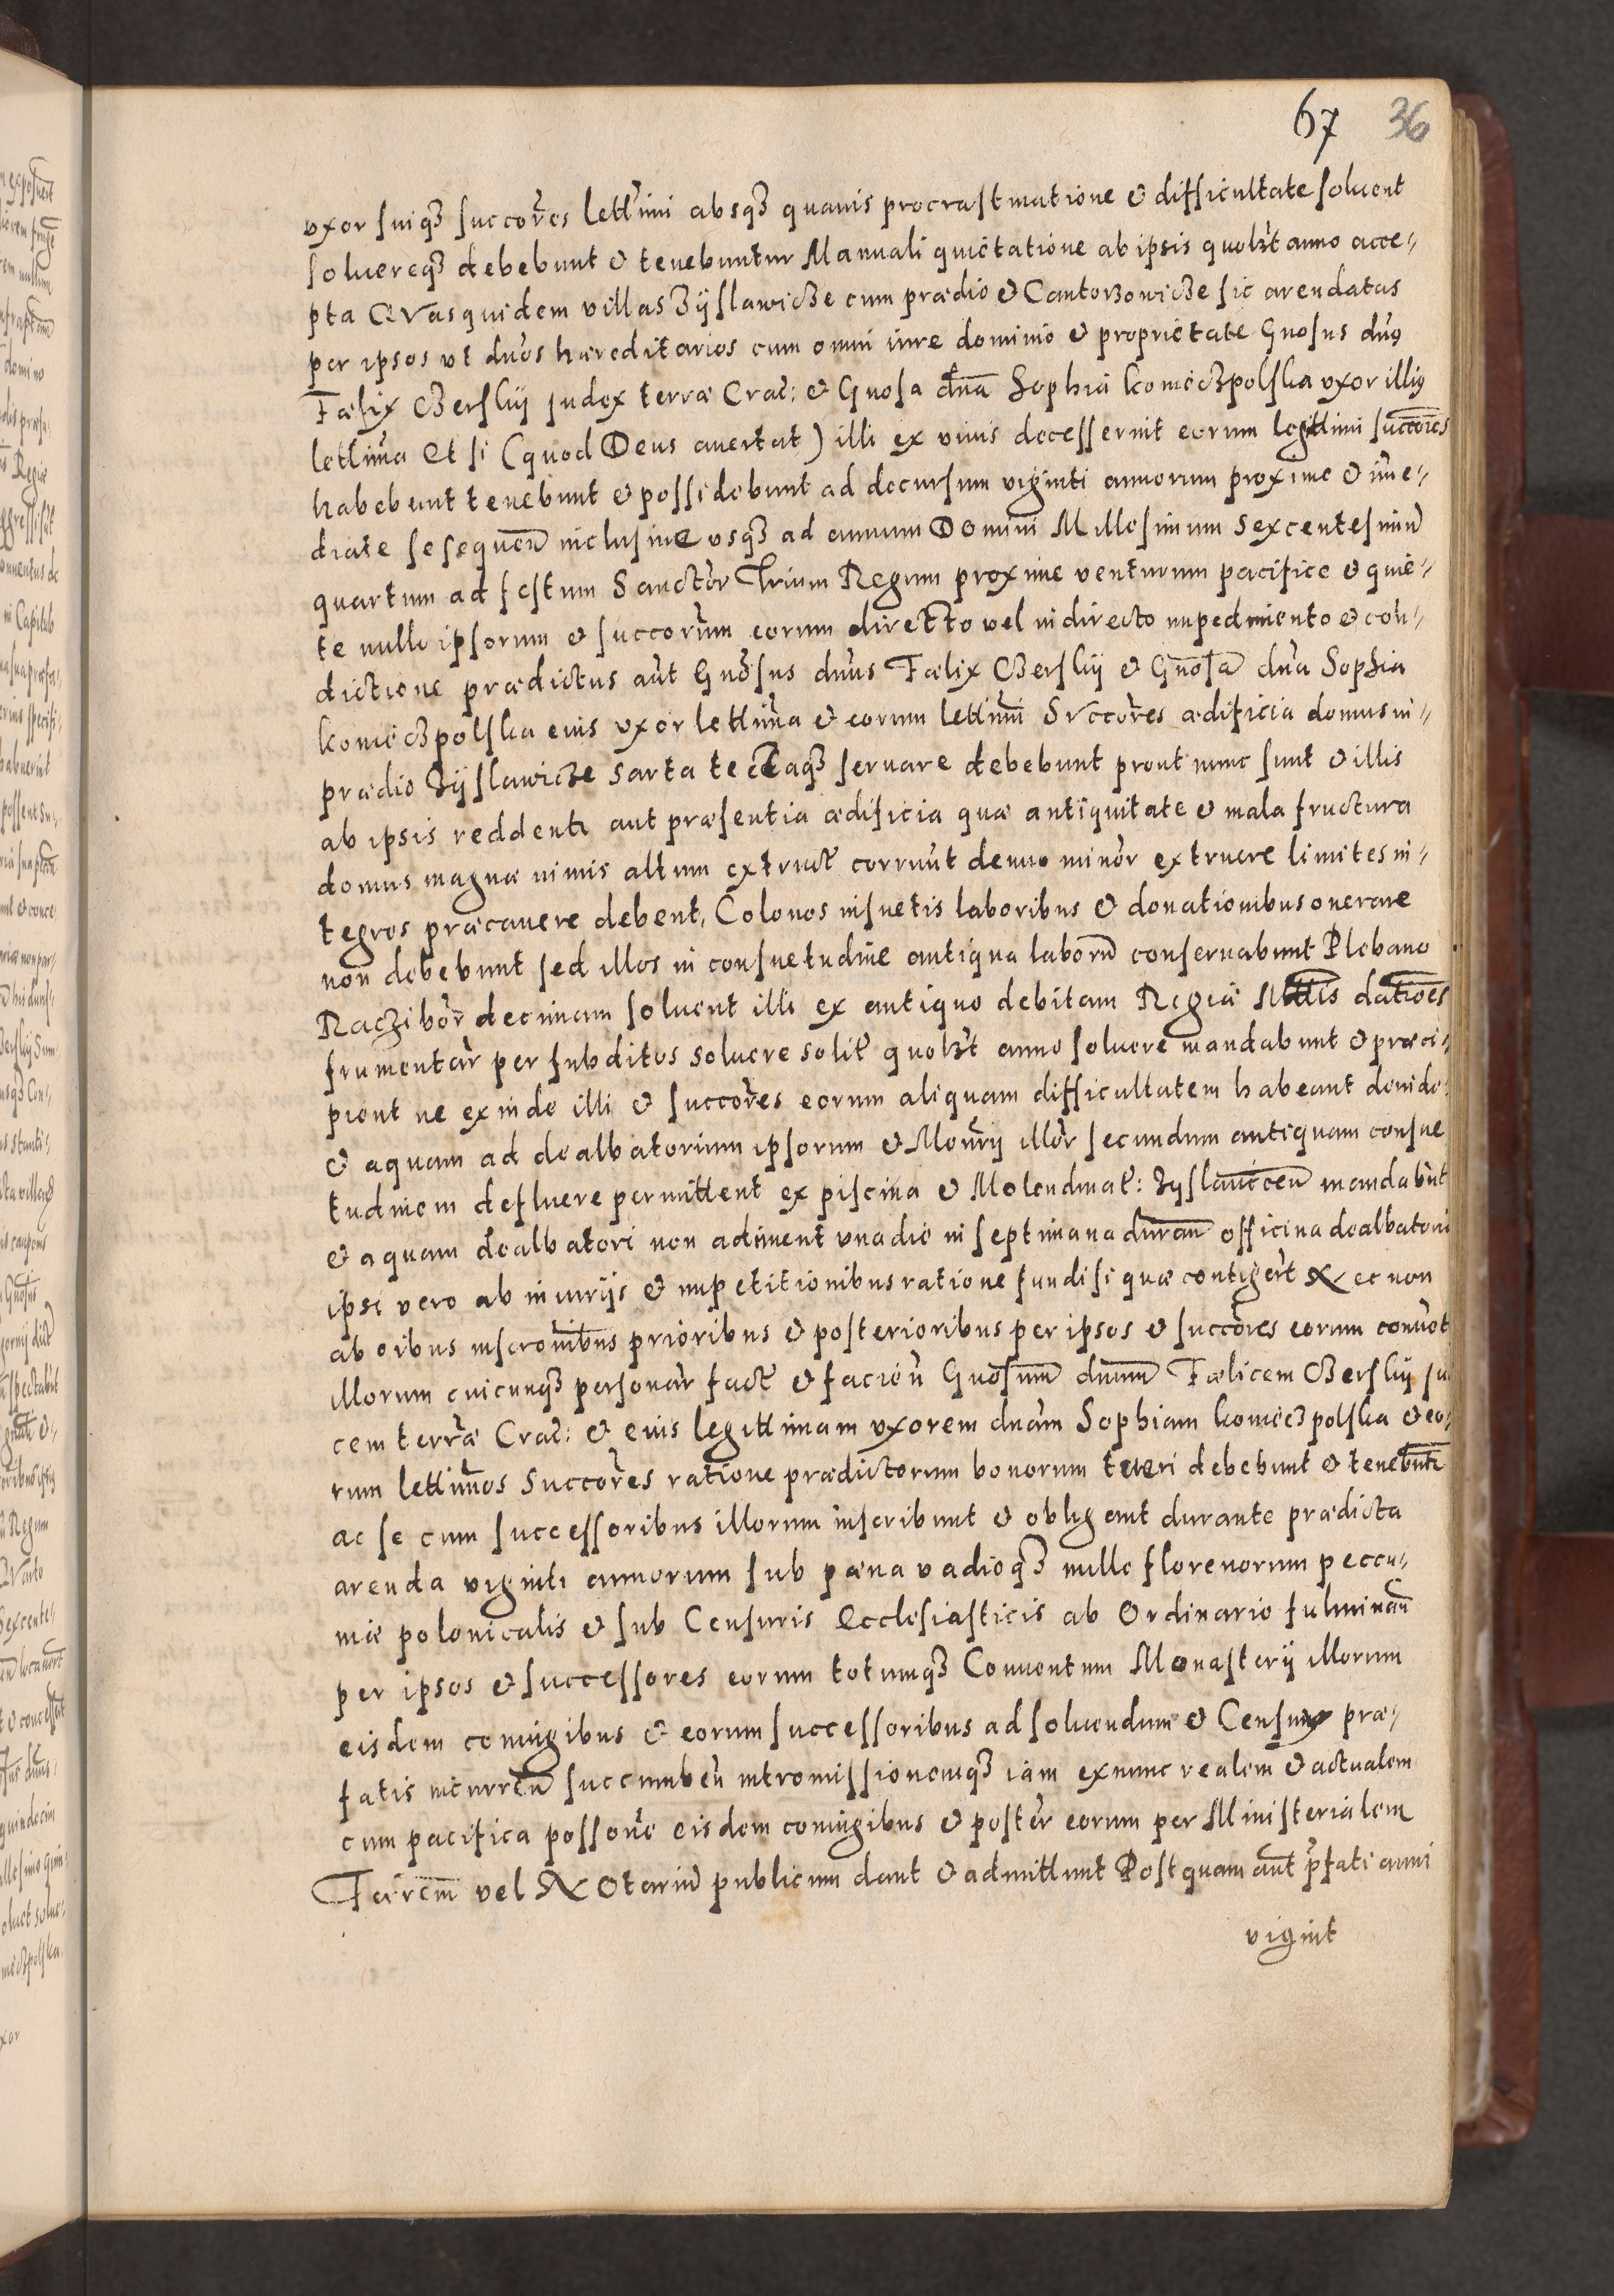 67 36
vxor suiq3 succores lettimi absq3 quauis procrastinatione & difficultate soluent
soluereq3 debebunt & tenebuntur Manuali quictatione ab ipsis quolzt anno acce-
pta QVas quidem villas Zÿslawicze cum prædio & Cantorzowicze sic arendatas
per ipsos vt duos hæreditarios cum omni iure dominio & proprietate Gnosus dns
Fælix Czerskÿ judex terræ Crac: & Gnosa dna Sophia konieczpolska vxor illius
lettima Et si (quod Deus auertat) illi ex viuis decesserint eorum legittimi succores
habebunt tenebunt & possidebunt ad decursum viginti annorum proxime & ime-
diate se sequen inclusiue vsq3 ad annum Domini Millesimum Sexcentesimu
quartum ad festum Sanctor Trium Regum proxime venturum pacifice & quie-
te nullo ipsorum & succorum eorum diretto vel indirecto impedimento & con-
dictione prædictus aut Gnosus dnus Fælix Czerskÿ & Gnosa dna Sophia
konieczpolska eius vxor lettima & eorum lettimi SVccores ædificia domus in-
prædio Zÿslawicze Sarta tectaq3 seruare debebunt prout nunc sunt & illis
ab ipsis reddenti aut præsentia ædificia quæ antiquitate & mala structura
domus magnæ nimis altum extruct corruut denuo minor extruere limites in-
tegros præcauere debent, Colonos insuetis laboribus & donationibus onerare
non debebunt sed illos in consuetudine antiqua laboru conseruabunt Plebano
Raczibor decimam soluent illi ex antiquo debitam Regiæ Mttis dationes
frumentar per subditos soluere solit quolzt anno soluere mandabunt & præci-
pient ne exinde illi & succores eorum aliquam difficultatem habeant deinde
& aquam ad dealbatorium ipsorum & Monrij illor secundum antiquam consue
tudinem defluere permittent ex piscina & Molendinat: Zyslauiccen mandabut
& aquam dealbatori non adiment vna die in septimana duran officina dealbatoni
ipsi vero ab iniurijs & impetitionibus ratione fundi si quæ contigert Nec non
ab oibus inscronibus prioribus & posterioribus per ipsos & succores eorum conuot
illorum cuicunq3 personar fact & facien Gnosum dnum Fælicem Czerskÿ ju
cem terræ Crac: & eius legittimam vxorem dnam Sophiam koniecz polska & eo-
rum lettimos Succores ratione prædictorum bonorum tueri debebunt & tenebunt
ac se cum successoribus illorum inscribunt & obligant durante prædicta
arenda viginti annorum sub pæna vadioq3 mille florenorum peccu-
niæ polonicalis & sub Censuris Ecclesiasticis ab Ordinario fulminan
per ipsos & successores eorum totumq3 Conuentum Monasterij illorum
eisdem coniugibus & eorum successoribus ad soluendum & Censuris præ-
fatis incurren succumben intromissionemq3 iam exnunc realem & actualem
cum pacifica possone eisdem coniugibus & poster eorum per Ministerialem
Terrem vel NOtariu publicum dant & admittunt Postquam aut prfati anni
vigint